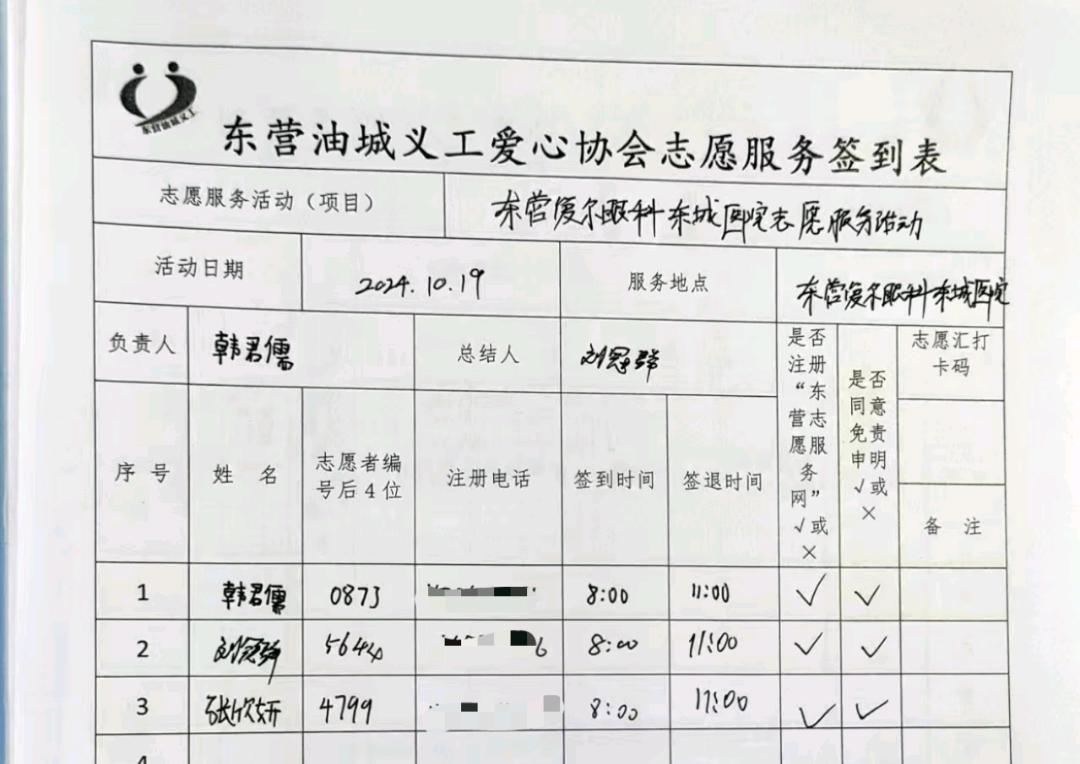 东营油城义工
东营油城义工爱心协会志愿服务签到表
志愿服务活动（项目） 东营爱尔眼科东城医院志愿服务活动
活动日期 2024.10.19 服务地点 东营爱尔眼科东城医院
负责人 韩君儒 总结人 刘冠群
序号 姓名 志愿者编号后4位 注册电话 签到时间 签退时间 是否注册“东营志愿服务网”√或× 是否同意免责申明√或× 志愿汇打卡码 备注
1 韩君儒 0873 8:00 11:00 √ √
2 刘冠群 5644 6 8:00 11:00 √ √
3 张欣妍 4799 8:00 11:00 √ √
4